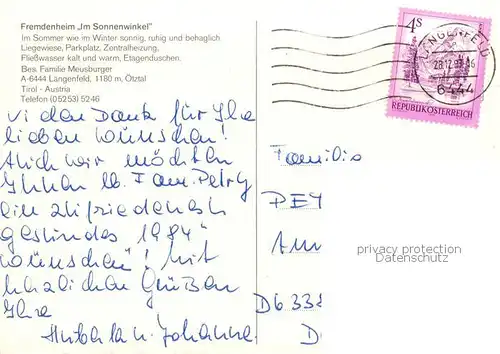 Fremdenheim „Im Sonnenwinkel"
Im Sommer wie im Winter sonnig, ruhig und behaglich
Liegewiese, Parkplatz, Zentralheizung,
Fließwasser kalt und warm, Etagenduschen.
Bes. Familie Meusburger
A-6444 Längenfeld, 1180 m, Ötztal
Tirol - Austria
Telefon (05253) 5246
Vielen Dank für Ihre
lieben Wünschen!
Auch wir möchten
Ihnen lb. Fam. Petry
ein zufriedenes
gesundes 1984
wünschen! Mit
herzlichen Grüßen
Ihre
Huberta u. Johanna
4 S
REPUBLIK ÖSTERREICH
LÄNGENFELD
28.12.
6444
Familie
PET
Am
D6338
D
privacy protection
Datenschutz